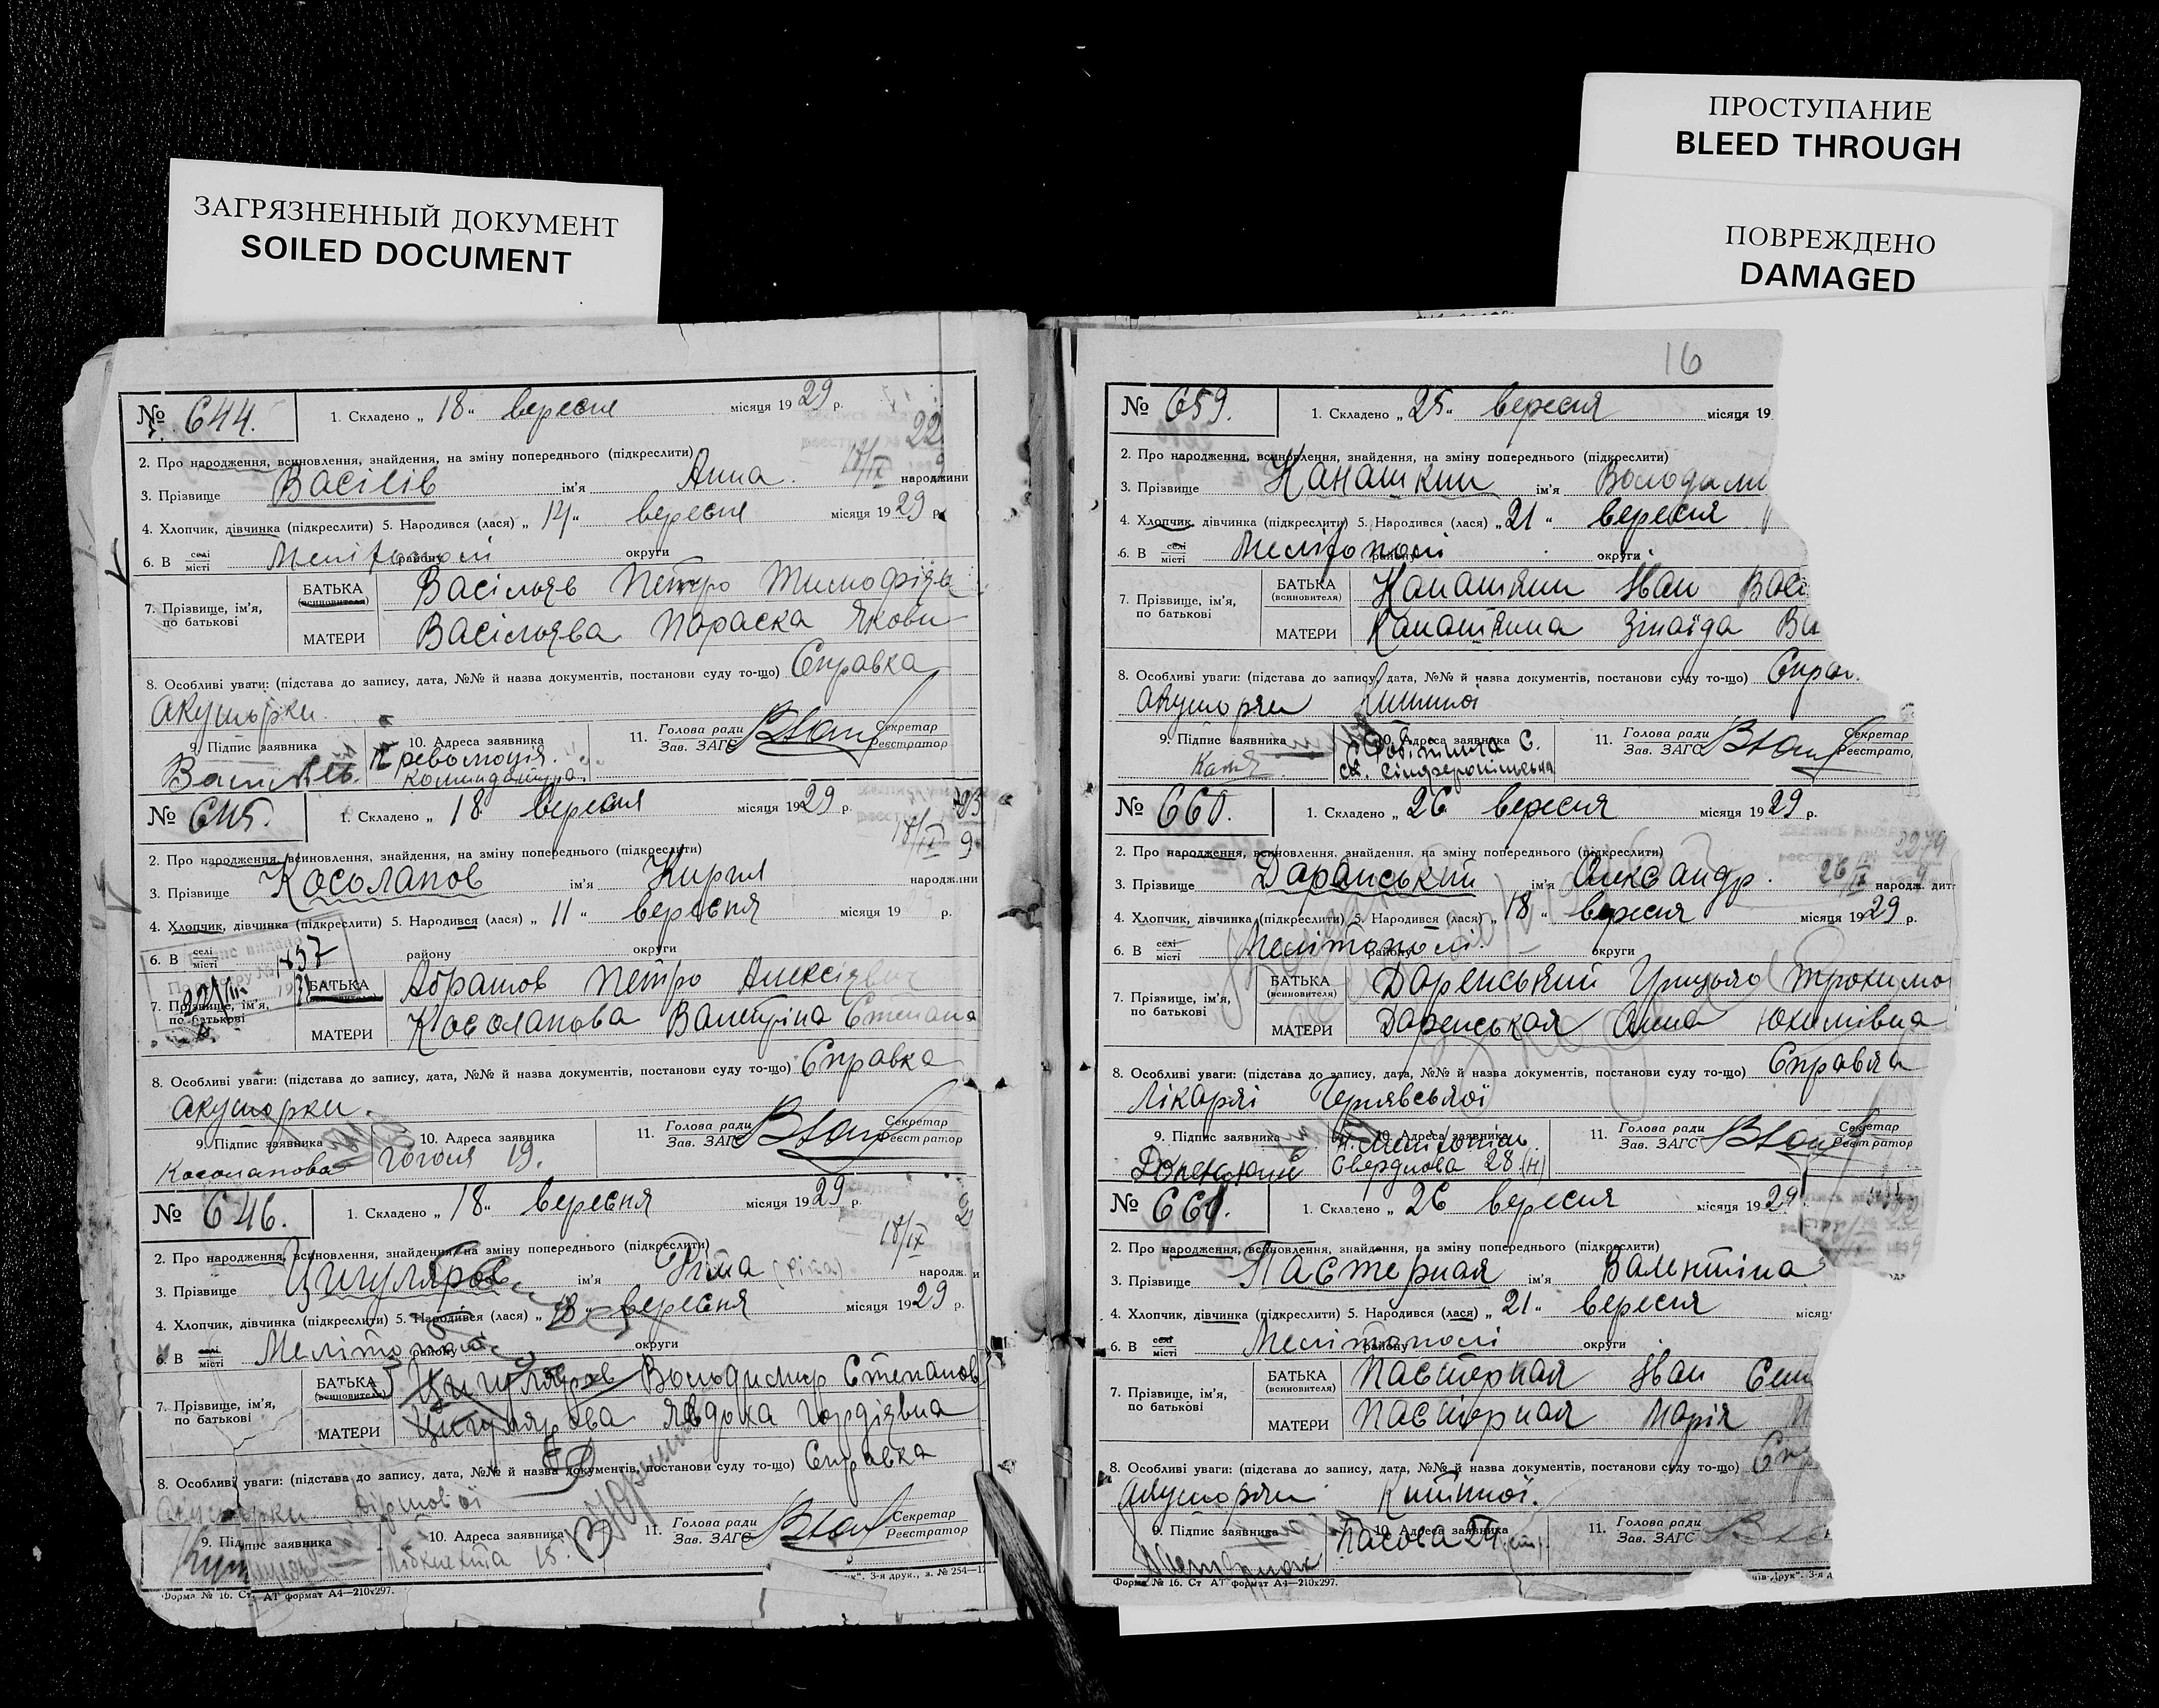 ЗАГРЯЗНЕННЫЙ ДОКУМЕНТ
SOILED DOCUMENT
ПРОСТУПАНИЕ
BLEED THROUGH
ПОВРЕЖДЕНО
DAMAGED
№ 644. 1. Складено „ 18 “ вересня місяця 1929 р.
2. Про народження, всиновлення, знайдення, на зміну попереднього (підкреслити)
3. Прізвище Васілів ім'я Анна. народжини
4. Хлопчик, дівчинка (підкреслити) 5. Народився (лася) „ 14 “ вересня місяця 1929 р.
6. В селі місті Мелітополі району округи
7. Прізвище, ім'я, по батькові
БАТЬКА (всиновителя) Васільєв Петро Тимофієв
МАТЕРИ Васільєва Параска Якови
8. Особливі уваги: (підстава до запису, дата, №№ й назва документів, постанови суду то-що) Справка
акушорки.
9. Підпис заявника 10. Адреса заявника революція. 11. Голова ради Зав. ЗАГС Секретар Реєстратор
№ 645. 1. Складено „ 18 “ вересня місяця 1929 р.
2. Про народження, всиновлення, знайдення, на зміну попереднього (підкреслити)
3. Прізвище Косолапов ім'я Кирил народжини
4. Хлопчик, дівчинка (підкреслити) 5. Народився (лася) „ 11 “ вересня місяця 19 р.
6. В селі місті району округи
7. Прізвище, ім'я, по батькові
БАТЬКА Абрамов Петро Алексієвич
МАТЕРИ Косолапова Валетріна Степана
8. Особливі уваги: (підстава до запису, дата, №№ й назва документів, постанови суду то-що) Справка
акушорки.
9. Підпис заявника Косолапова 10. Адреса заявника Гоголя 19. 11. Голова ради Зав. ЗАГС Секретар Реєстратор
№ 646. 1. Складено „ 18 “ вересня місяця 1929 р.
2. Про народження, всиновлення, знайдення, на зміну попереднього (підкреслити)
3. Прізвище Цигуляров ім'я Ріта (Ріта) народж.
4. Хлопчик, дівчинка (підкреслити) 5. Народився (лася) „ 18 “ вересня місяця 1929 р.
6. В селі місті Мелітополі району округи
7. Прізвище, ім'я, по батькові
БАТЬКА (всиновителя) Цигуляров Володимир Степанов
МАТЕРИ Цигулярова Явдока Гордієвна
8. Особливі уваги: (підстава до запису, дата, №№ й назва документів, постанови суду то-що) Справка
акушорки
9. Підпис заявника 10. Адреса заявника Лібкнехта 18. 11. Голова ради Зав. ЗАГС Секретар Реєстратор
Форма № 16. Ст. АТ формат А4—210х297. 3-я друк., з. № 254—1
16
№ 659. 1. Складено „ 25 “ вересня місяця 19
2. Про народження, всиновлення, знайдення, на зміну попереднього (підкреслити)
3. Прізвище Канашкин ім'я Володими
4. Хлопчик, дівчинка (підкреслити) 5. Народився (лася) „ 21 “ вересня
6. В селі місті Мелітополі району округи
7. Прізвище, ім'я, по батькові
БАТЬКА (всиновителя) Канашкин Іван Васі
МАТЕРИ Канашкина Зінаїда Ви
8. Особливі уваги: (підстава до запису, дата, №№ й назва документів, постанови суду то-що) Справ
Акушорки
9. Підпис заявника 10. Адреса заявника 11. Голова ради Зав. ЗАГС Секретар Реєстрато
№ 660. 1. Складено „ 26 “ вересня місяця 1929 р.
2. Про народження, всиновлення, знайдення, на зміну попереднього (підкреслити)
3. Прізвище Даранський ім'я Олександр. народж. дит
4. Хлопчик, дівчинка (підкреслити) 5. Народився (лася) „ 18 “ вересня місяця 1929 р.
6. В селі місті Мелітополі району округи
7. Прізвище, ім'я, по батькові
БАТЬКА (всиновителя) Даренський Грицько Трохимо
МАТЕРИ Даренськая Анна Юхимівна
8. Особливі уваги: (підстава до запису, дата, №№ й назва документів, постанови суду то-що) Справка
Лікаркі Чернявської
9. Підпис заявника 10. Адреса заявника м. Мелітопіль Свердлова 28 (н) 11. Голова ради Зав. ЗАГС Секретар Реєстратор
№ 661. 1. Складено „ 26 “ вересня місяця 1929
2. Про народження, всиновлення, знайдення, на зміну попереднього (підкреслити)
3. Прізвище Пастерная ім'я Валентіна
4. Хлопчик, дівчинка (підкреслити) 5. Народився (лася) „ 21 “ вересня місяц
6. В селі місті Мелітополі району округи
7. Прізвище, ім'я, по батькові
БАТЬКА (всиновителя) Пастерная Іван Сем
МАТЕРИ Пастерная Марія
8. Особливі уваги: (підстава до запису, дата, №№ й назва документів, постанови суду то-що) Спр
Акушорки
9. Підпис заявника 10. Адреса заявника 11. Голова ради Зав. ЗАГС
Форма № 16. Ст АТ формат А4—210х297.